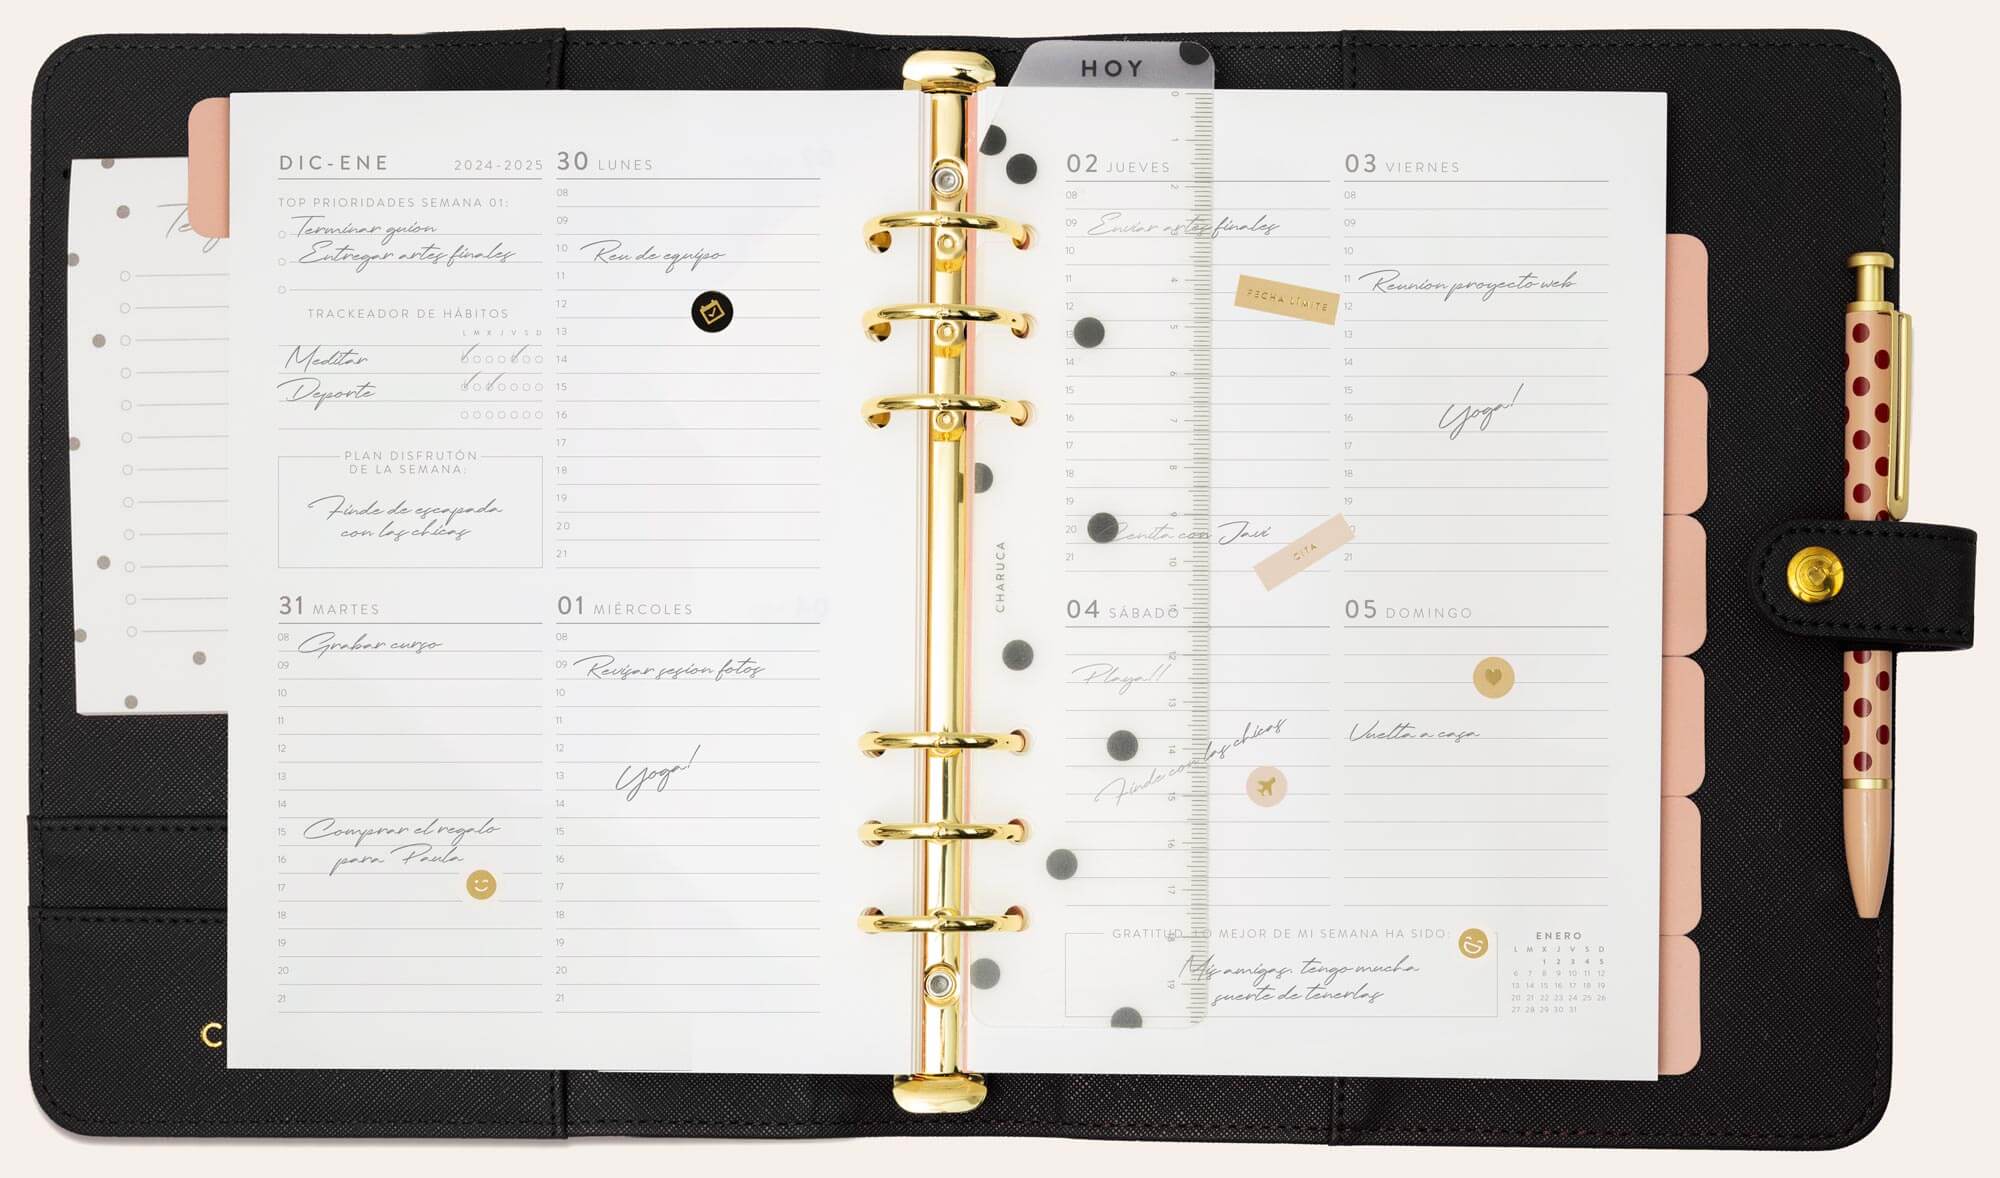 DIC-ENE 2024-2025
TOP PRIORIDADES SEMANA 01:
Terminar guion
Entregar artes finales
TRACKEADOR DE HÁBITOS
L M X J V S D
Meditar
Deporte
PLAN DISFRUTÓN
DE LA SEMANA:
Finde de escapada
con las chicas
30 LUNES
08
09
10 Reu de equipo
11
12
13
14
15
16
17
18
19
20
21
31 MARTES
08 Grabar curso
09
10
11
12
13
14
15 Comprar el regalo
16 para Paula
17
18
19
20
21
01 MIÉRCOLES
08
09 Revisar sesion fotos
10
11
12
13 Yoga!
14
15
16
17
18
19
20
21
HOY
CHARUCA
0
1
2
3
4
5
6
7
8
9
10
12
13
14
15
17
18
19
02 JUEVES
08
09 Enviar artes finales
10
11
FECHA LÍMITE
12
13
14
15
16
17
18
19
20 Cenita con Javi
CITA
21
03 VIERNES
08
09
10
11 Reunion proyecto web
12
13
14
15
16 Yoga!
17
18
19
20
21
04 SÁBADO
Playa!!
Finde con las chicas
05 DOMINGO
Vuelta a casa
GRATITUD, LO MEJOR DE MI SEMANA HA SIDO:
Mis amigas. tengo mucha
suerte de tenerlas
ENERO
L M X J V S D
1 2 3 4 5
6 7 8 9 10 11 12
13 14 15 16 17 18 19
20 21 22 23 24 25 26
27 28 29 30 31